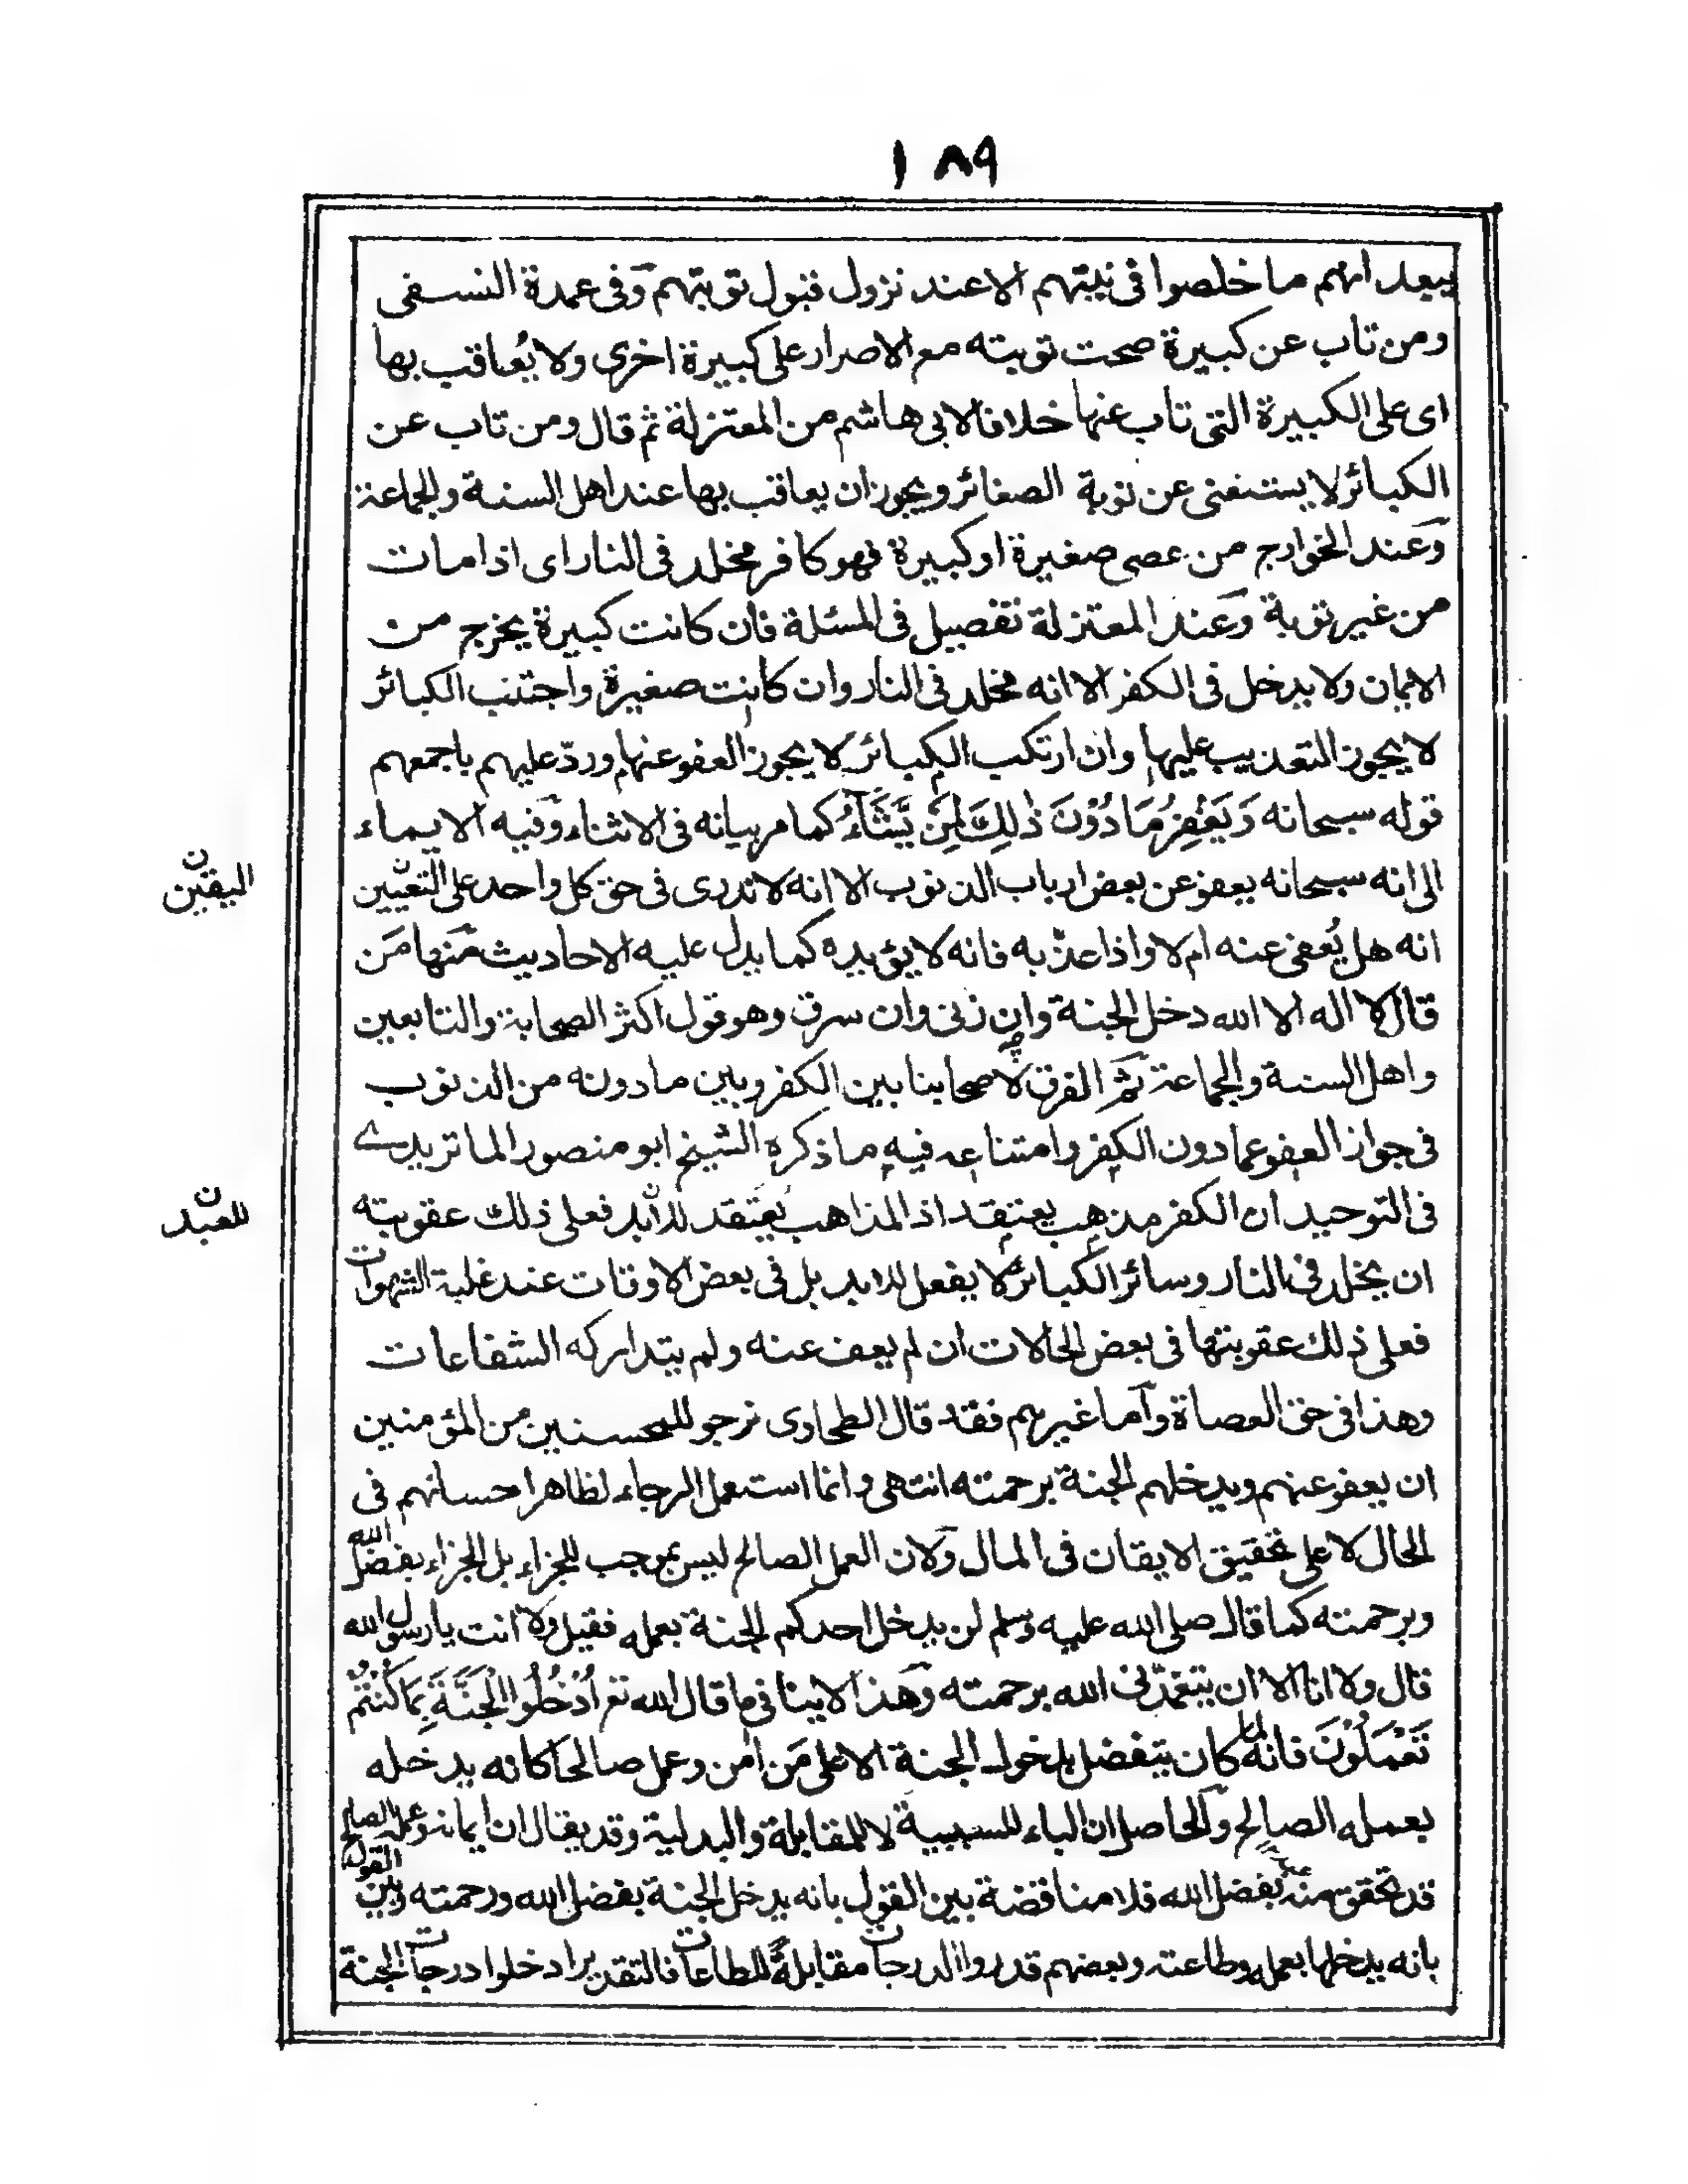 ١٨٩
يبعد انهم ما خلصوا فى نيتهم الا عند نزول قبول توبتهم وفى عمدة النسفى
ومن تاب عن كبيرة صحت توبته مع الاصرار على كبيرة اخرى ولا يُعاقب بها
اى على الكبيرة التى تاب عنها خلافا لابى هاشم من المعتزلة ثم قال ومن تاب عن
الكبائر لا يستغنى عن توبة الصغائر ويجوز ان يعاقب بها عند اهل السنة والجماعة
وعند الخوارج من عصى صغيرة او كبيرة فهو كافر مخلد فى النار اى اذا مات
من غير توبة وعند المعتزلة تفصيل فى المسئلة فان كانت كبيرة يخرج من
الايمان ولا يدخل فى الكفر الا انه مخلد فى النار وان كانت صغيرة واجتنب الكبائر
لا يجوز التعذيب عليها وان ارتكب الكبائر لا يجوز العفو عنها وردّ عليهم باجمعهم
قوله سبحانه وَيَغْفِرُ مَا دُوْنَ ذٰلِكَ لِمَنْ يَّشَآءُ كما مر بيانه فى الاثناء وفيه الايماء
الى انه سبحانه يعفو عن بعض ارباب الذنوب الا انه لا ندرى فى حق كل واحد على التعيين
اليقين ن
انه هل يُعفى عنه ام لا واذا عذّبه فانه لا يؤبده كما يدل عليه الاحاديث منها مَن
قال لا اله الا الله دخل الجنة وان زنى وان سرق وهو قول اكثر الصحابة والتابعين
واهل السنة والجماعة ثم الفرق لاصحابنا بين الكفر وبين ما دونه من الذنوب
فى جواز العفو عما دون الكفر وامتناعه فيه ما ذكره الشيخ ابو منصور الماتريدے
فى التوحيد ان الكفر مذهب يعتقد اذ المذاهب يُعتَقد للابد فعلى ذلك عقوبته
للعبد ن
ان يخلد فى النار وسائر الكبائر لا يفعل للابد بل فى بعض الاوقات عند غلبة الشهوات
فعلى ذلك عقوبتها فى بعض الحالات ان لم يعف عنه ولم يتداركه الشفاعات
وهذا فى حق العصاة وآما غيرهم فقد قال الطحاوى نرجو للمحسنين من المؤمنين
ان يعفو عنهم ويدخلهم الجنة برحمته انتهى وانما استعمل الرجاء لظاهر احسانهم فى
الحال لا على تحقيق الايقان فى المال ولان العمل الصالح ليس بموجب للجزاء بل الجزاء بفضل الله
وبرحمته كما قال صلى الله عليه وسلم لن يدخل احدكم الجنة بعمله فقيل ولا انت يا رسول الله
قال ولا انا الا ان يتغمّدنى الله برحمته وهذا لا ينافى ما قال الله تع اُدْخُلُوا الْجَنَّةَ بِمَا كُنْتُمْ
تَعْمَلُوْنَ فانه لما كان يتفضل بدخول الجنة الا على مَن اٰمن وعمل صالحا كانه يدخله
بعمله الصالح والحاصل ان الباء للسببية لا للمقابلة والبدلية وقد يقال ان ايمانه وعمله الصالح
قد تحقق منه بفضل الله فلا مناقضة بين القول بانه يدخل الجنة بفضل الله ورحمته وبين القول
بانه يدخلها بعمله وطاعته وبعضهم قدروا الدرجات مقابلةً للطاعات فالتقدير ادخلوا درجات الجنة